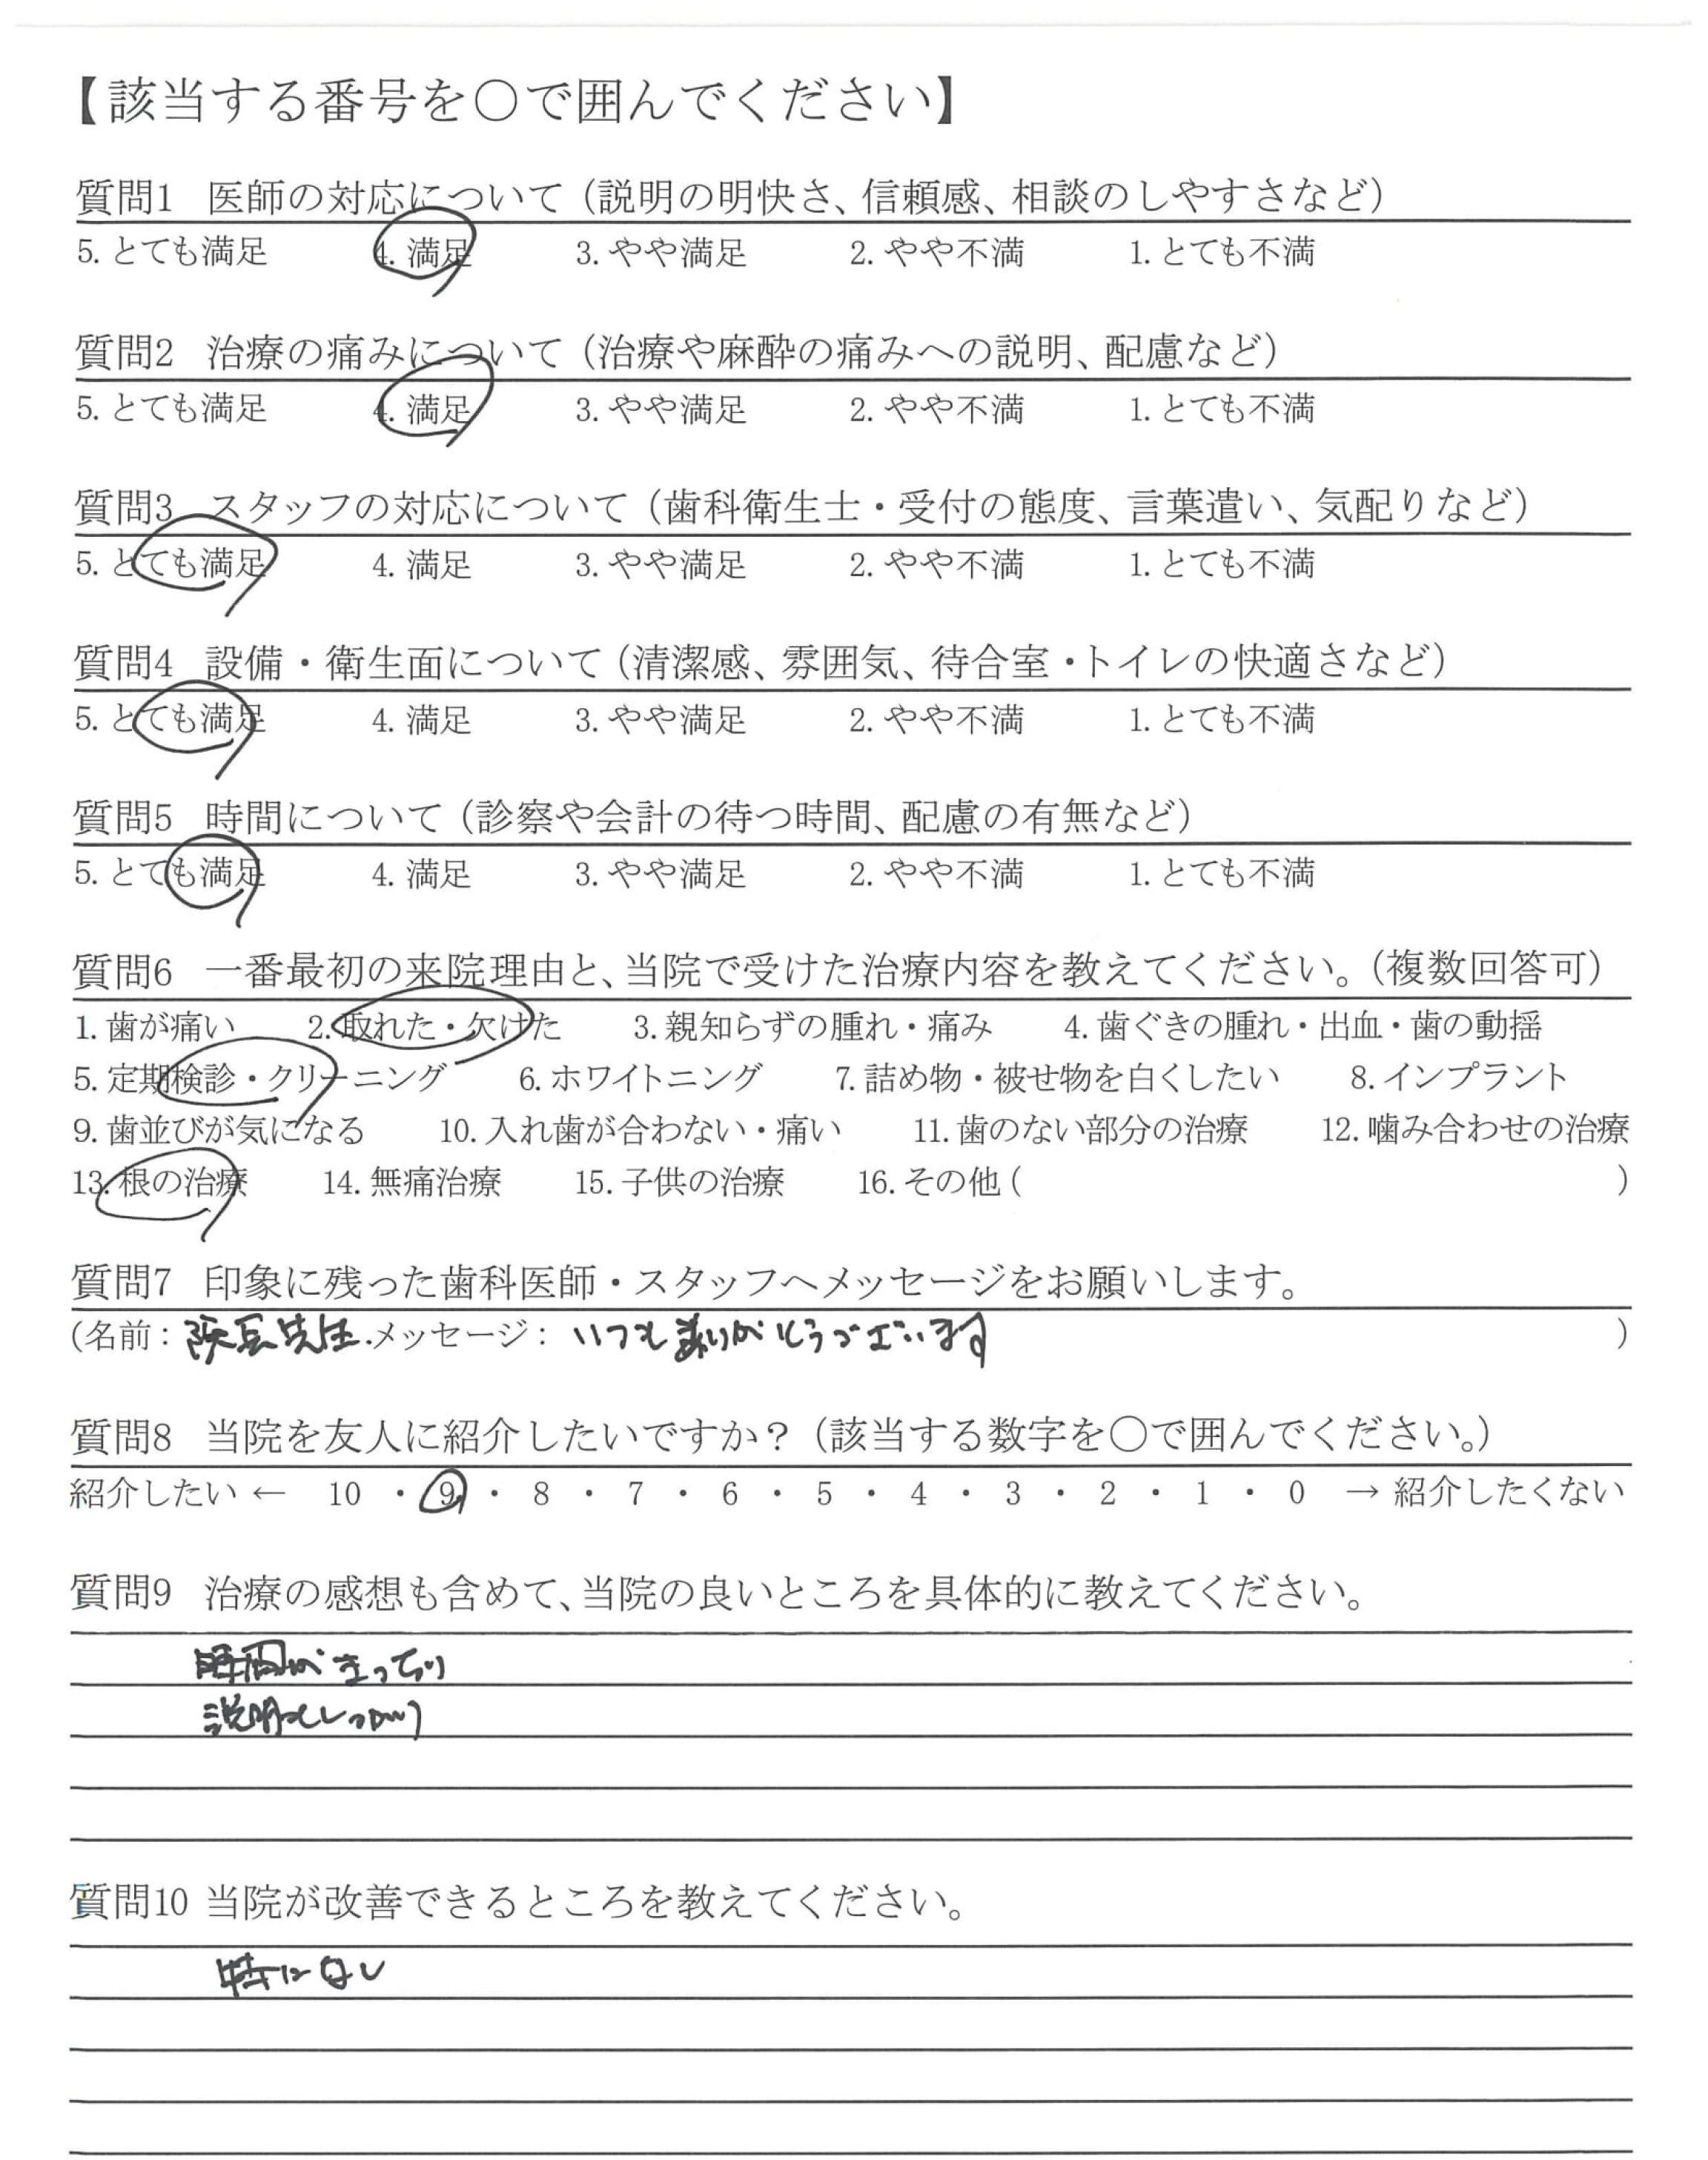 【該当する番号を〇で囲んでください】
質問1 医師の対応について（説明の明快さ、信頼感、相談のしやすさなど）
5. とても満足 4. 満足 3. やや満足 2. やや不満 1. とても不満
質問2 治療の痛みについて（治療や麻酔の痛みへの説明、配慮など）
5. とても満足 4. 満足 3. やや満足 2. やや不満 1. とても不満
質問3 スタッフの対応について（歯科衛生士・受付の態度、言葉遣い、気配りなど）
5. とても満足 4. 満足 3. やや満足 2. やや不満 1. とても不満
質問4 設備・衛生面について（清潔感、雰囲気、待合室・トイレの快適さなど）
5. とても満足 4. 満足 3. やや満足 2. やや不満 1. とても不満
質問5 時間について（診察や会計の待つ時間、配慮の有無など）
5. とても満足 4. 満足 3. やや満足 2. やや不満 1. とても不満
質問6 一番最初の来院理由と、当院で受けた治療内容を教えてください。（複数回答可）
1. 歯が痛い 2. 取れた・欠けた 3. 親知らずの腫れ・痛み 4. 歯ぐきの腫れ・出血・歯の動揺
5. 定期検診・クリーニング 6. ホワイトニング 7. 詰め物・被せ物を白くしたい 8. インプラント
9. 歯並びが気になる 10. 入れ歯が合わない・痛い 11. 歯のない部分の治療 12. 噛み合わせの治療
13. 根の治療 14. 無痛治療 15. 子供の治療 16. その他（ ）
質問7 印象に残った歯科医師・スタッフへメッセージをお願いします。
（名前：院長先生.メッセージ：いつも ありがとうございます ）
質問8 当院を友人に紹介したいですか？（該当する数字を〇で囲んでください。）
紹介したい ← 10 ・ 9 ・ 8 ・ 7 ・ 6 ・ 5 ・ 4 ・ 3 ・ 2 ・ 1 ・ 0 → 紹介したくない
質問9 治療の感想も含めて、当院の良いところを具体的に教えてください。
時間が きっちり
説明もしっかり
質問10 当院が改善できるところを教えてください。
特になし